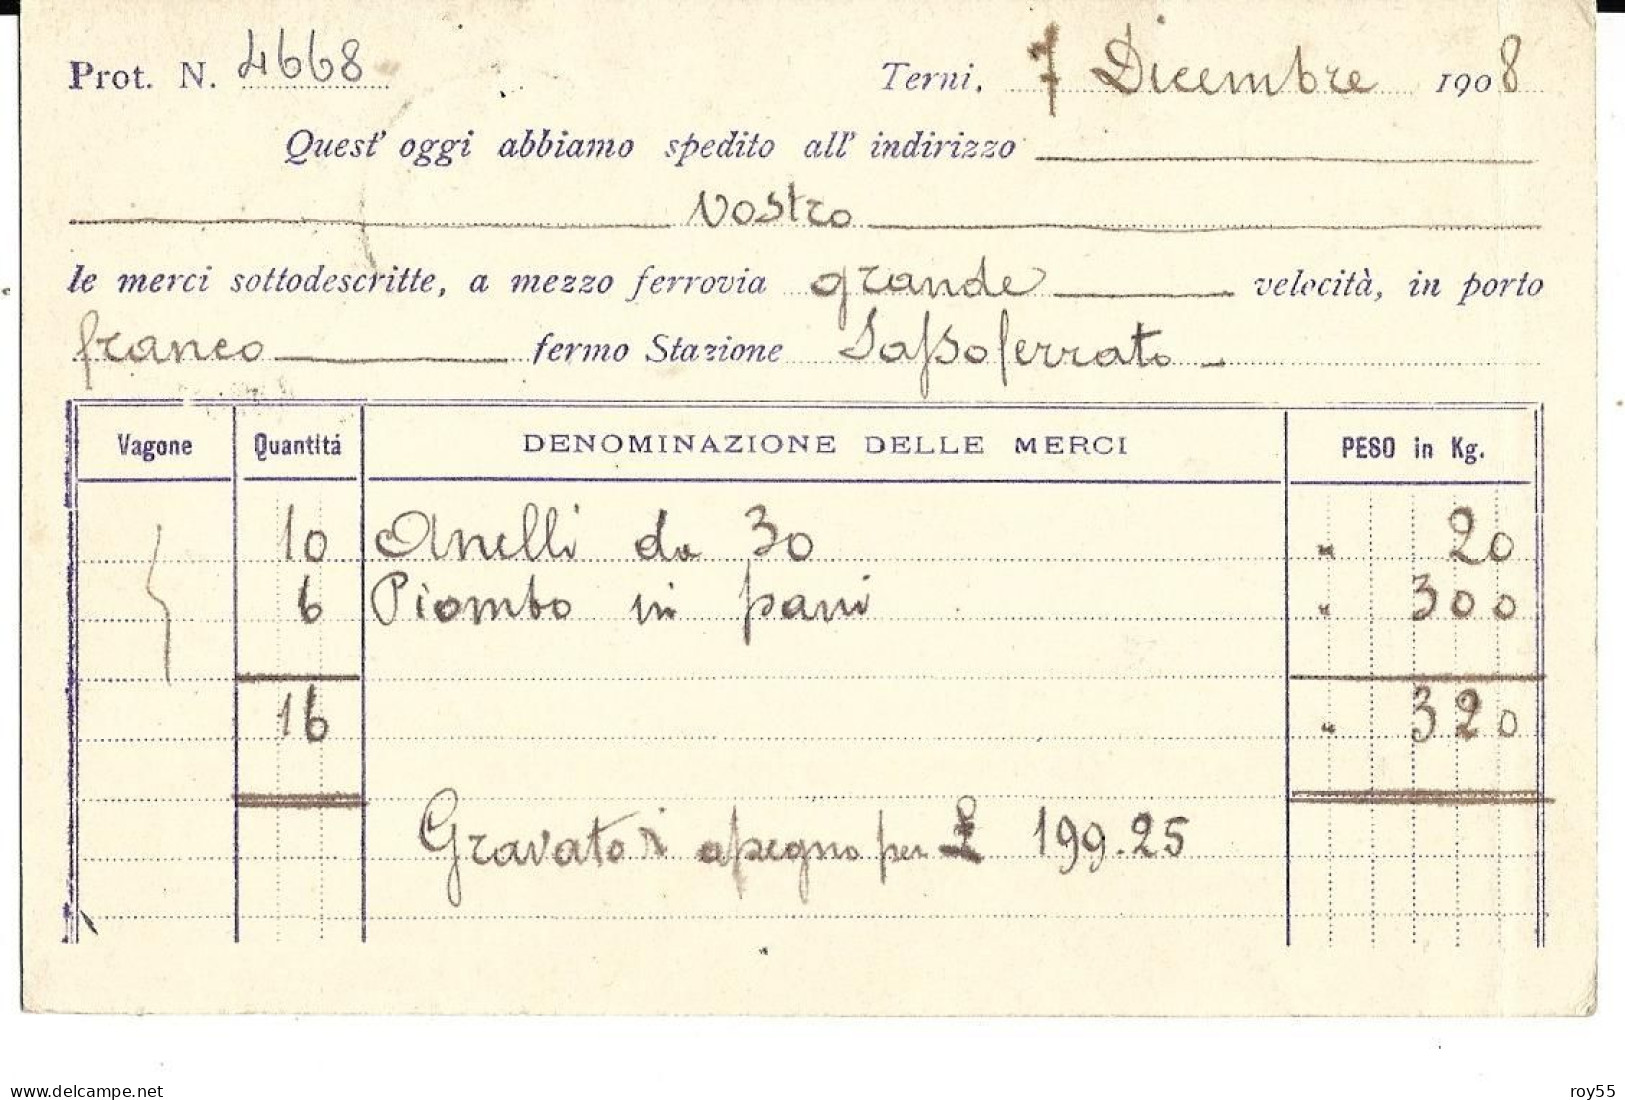 Prot. N. 4668 Terni, 7 Dicembre 1908
Quest' oggi abbiamo spedito all' indirizzo
Vostro
le merci sottodescritte, a mezzo ferrovia grande velocità, in porto
franco fermo Stazione Sassoferrato
Vagone Quantitá DENOMINAZIONE DELLE MERCI PESO in Kg.
10 Anelli da 30 " 20
6 Piombo in pani " 300
16 " 320
Gravato apegno per £ 199.25
www.delcampe.net roy55